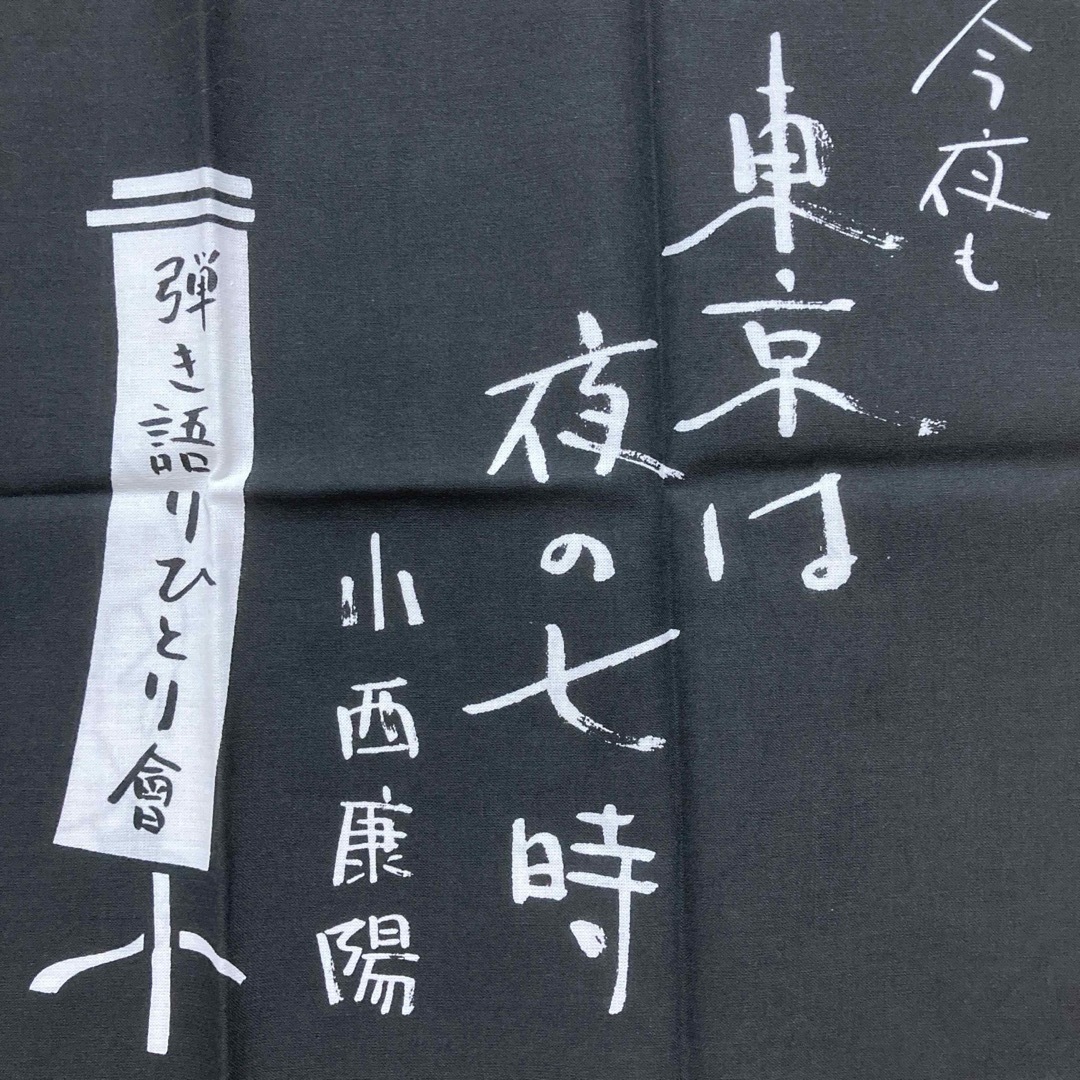 今夜も
東京は
夜の七時
小西康陽
弾き語りひとり會